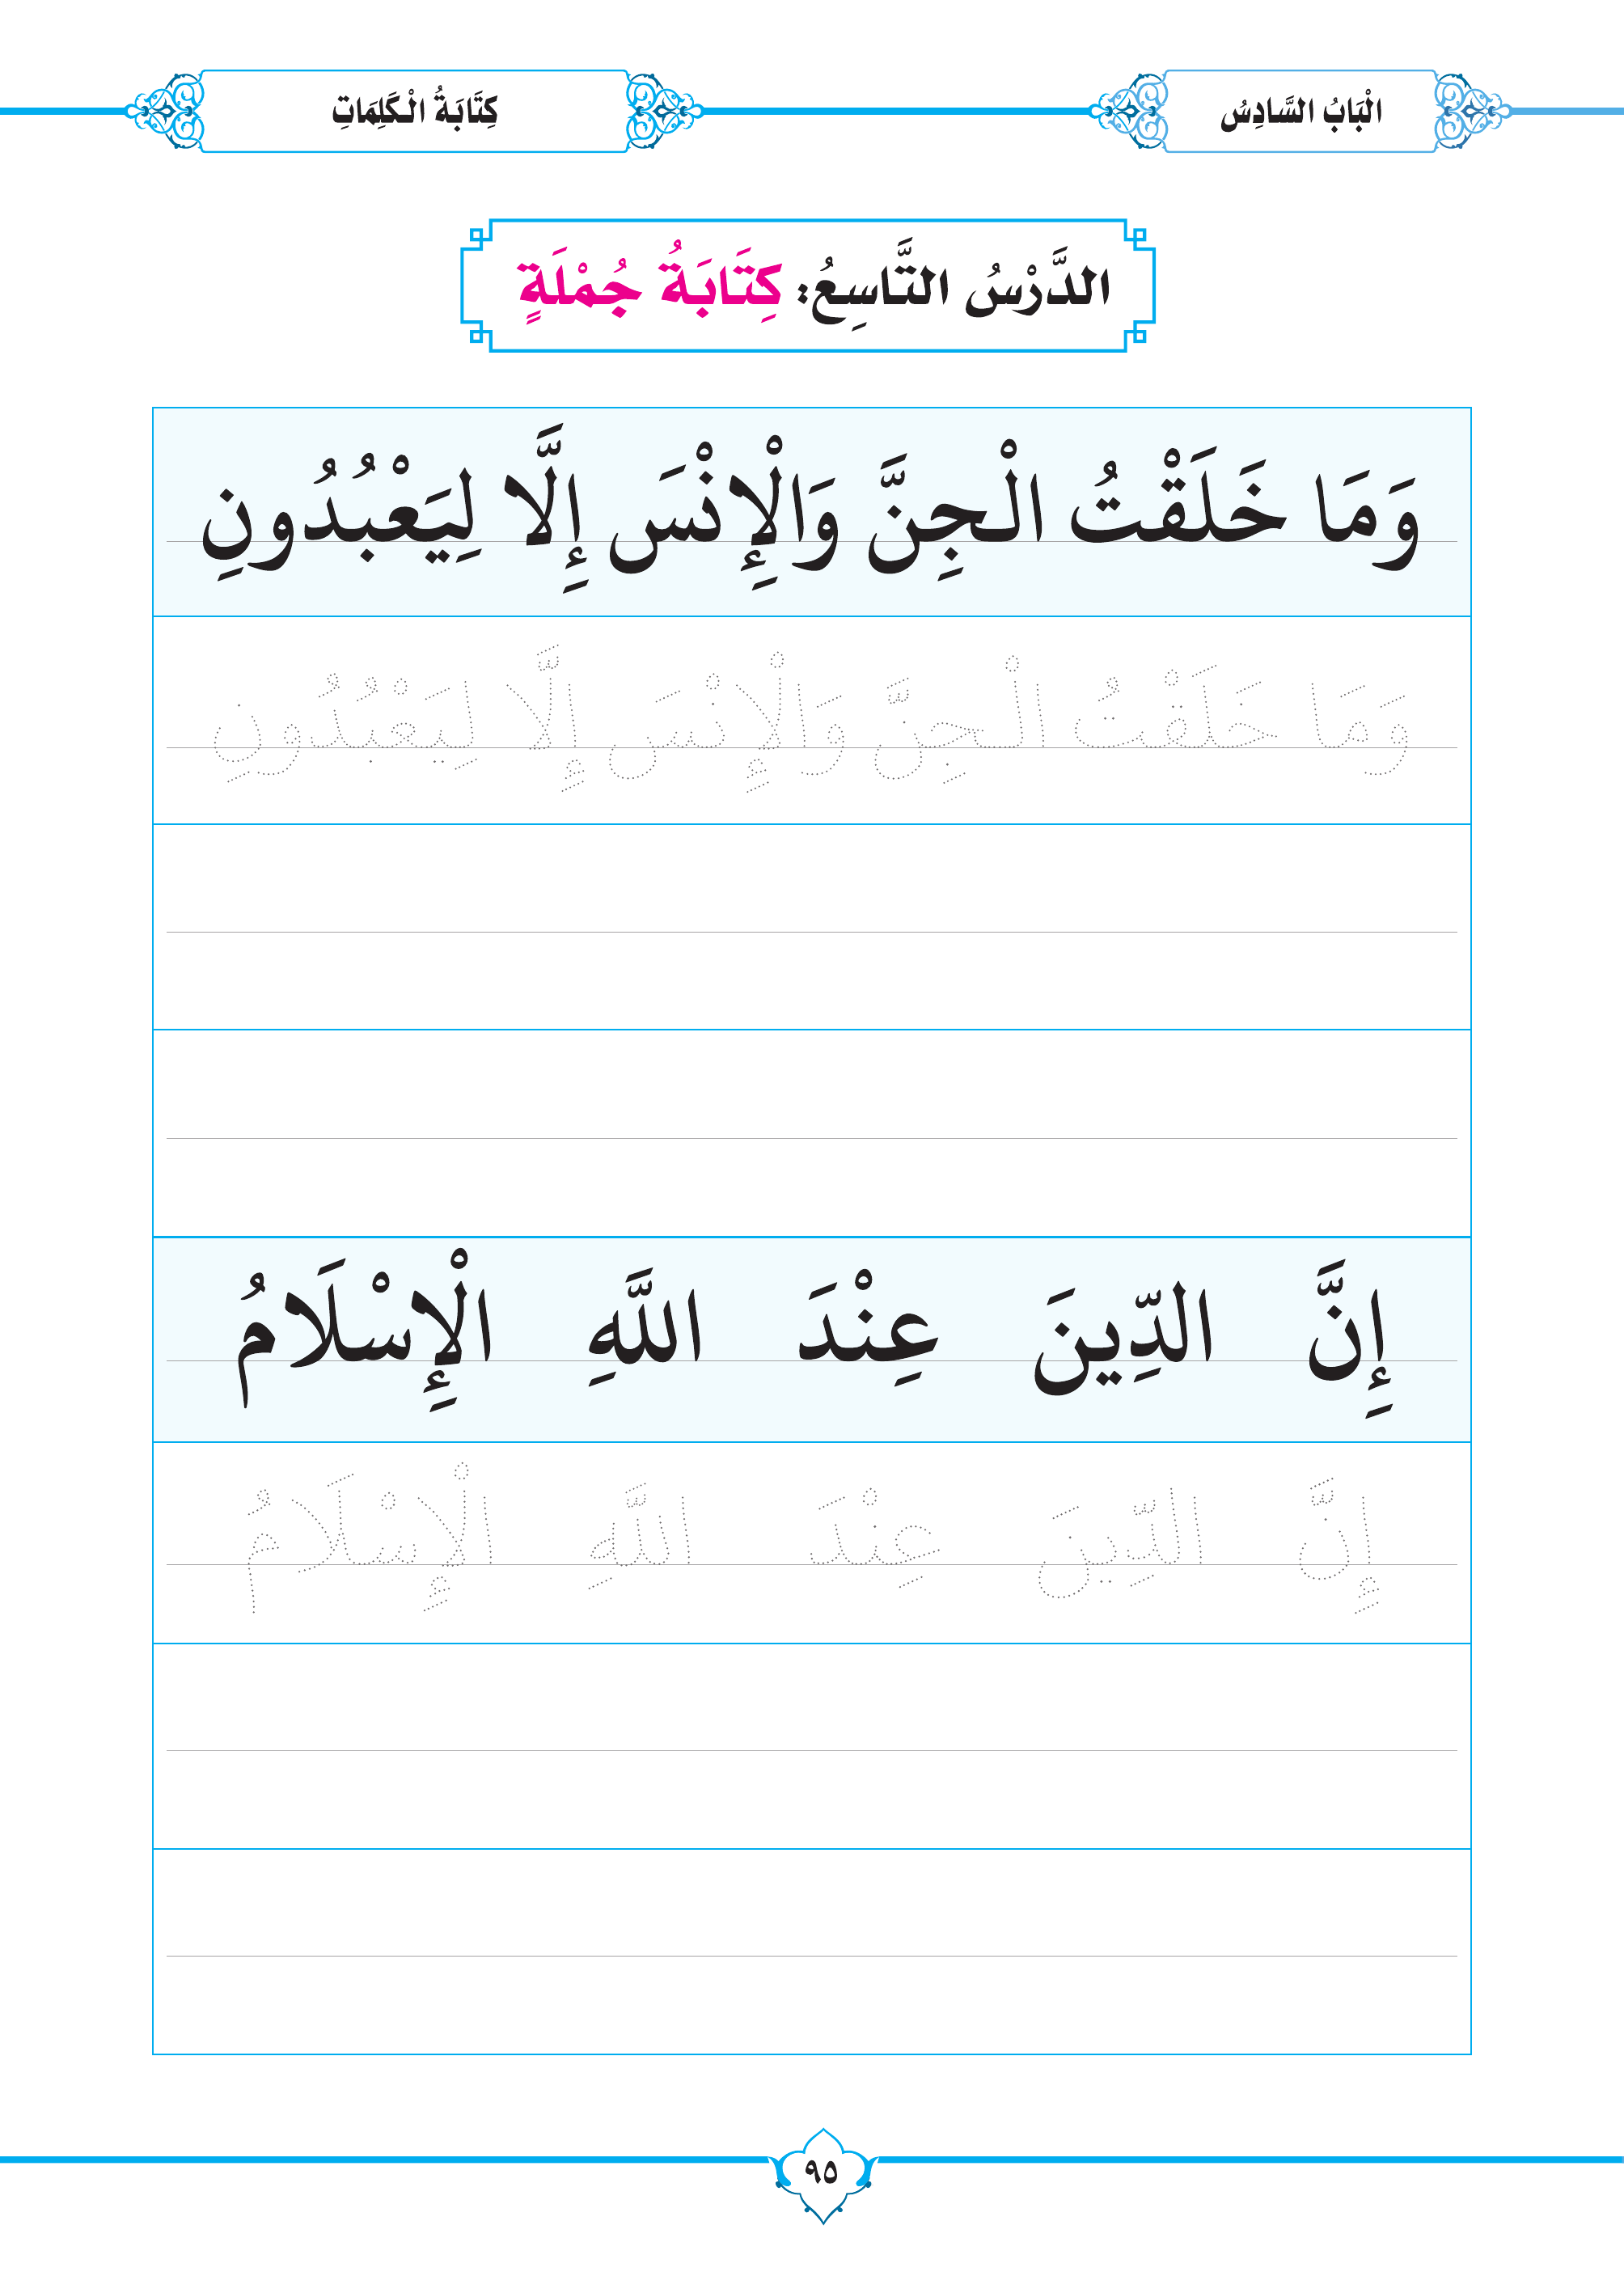 الْبَابُ السَّادِسُ
كِتَابَةُ الْكَلِمَاتِ
الدَّرْسُ التَّاسِعُ: كِتَابَةُ جُمْلَةٍ
وَمَا خَلَقْتُ الْجِنَّ وَالْإِنْسَ إِلَّا لِيَعْبُدُونِ
وَمَا خَلَقْتُ الْجِنَّ وَالْإِنْسَ إِلَّا لِيَعْبُدُونِ
إِنَّ الدِّينَ عِنْدَ اللَّهِ الْإِسْلَامُ
إِنَّ الدِّينَ عِنْدَ اللَّهِ الْإِسْلَامُ
٩٥